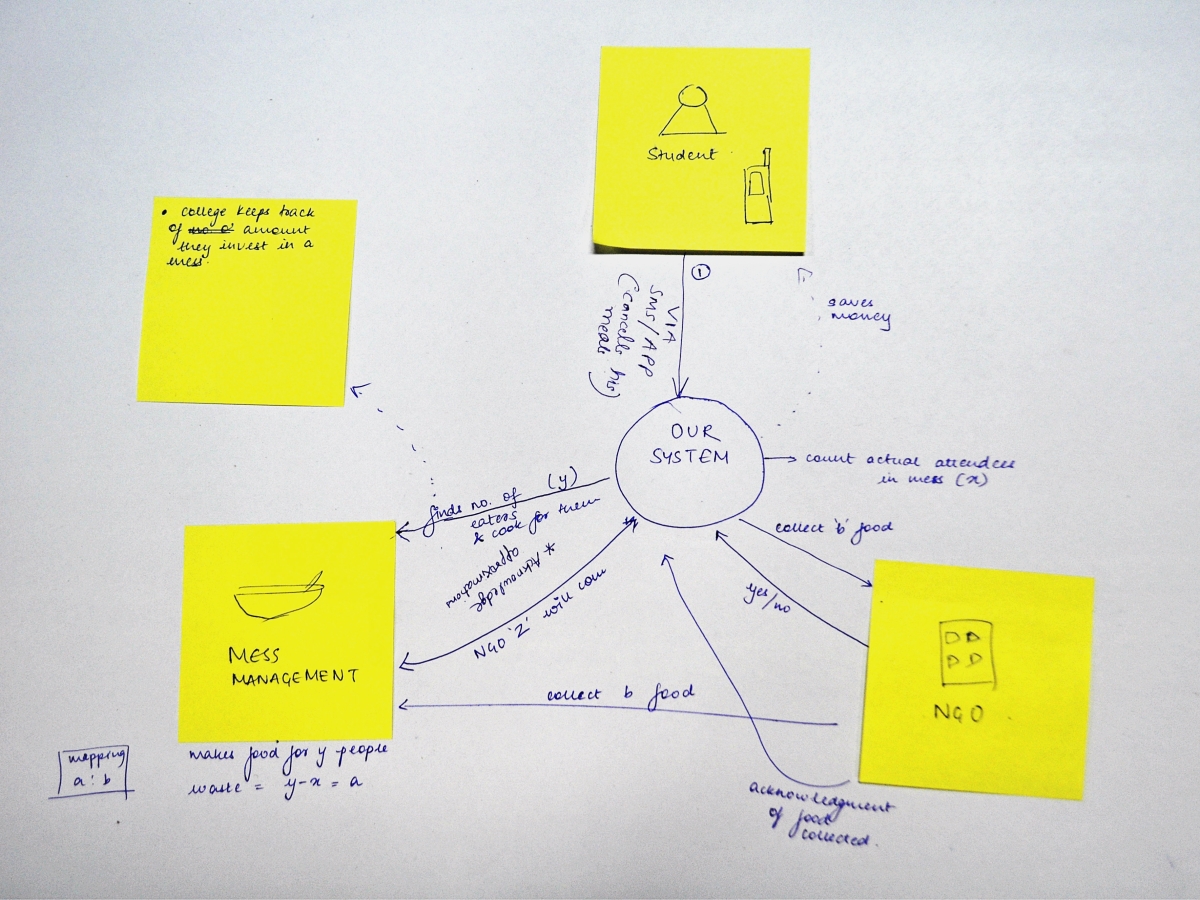 Student
• college keeps track
of no. o' amount
they invest in a
mess.
1
VIA
SMS/APP
(cancells his
meals)
saves
money
OUR
SYSTEM
count actual attendees
in mess (x)
(y)
finds no. of
eaters
& cook for them
* Acknowledge
approximation
NGO 'Z' will com
collect 'b' food
yes/no
MESS
MANAGEMENT
NGO
collect b food
makes food for y people
waste = y-x = a
mapping
a : b
acknowledgment
of food
collected.